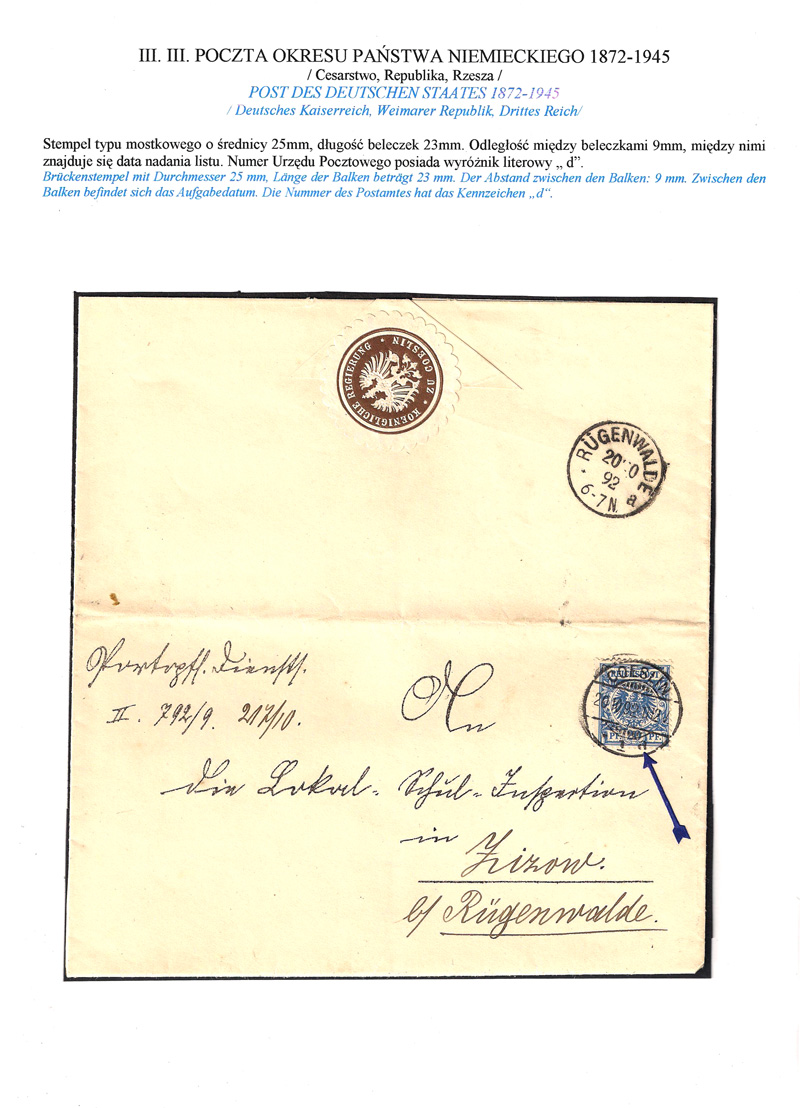 III. III. POCZTA OKRESU PAŃSTWA NIEMIECKIEGO 1872-1945
/ Cesarstwo, Republika, Rzesza /
POST DES DEUTSCHEN STAATES 1872-1945
/ Deutsches Kaiserreich, Weimarer Republik, Drittes Reich/
Stempel typu mostkowego o średnicy 25mm, długość beleczek 23mm. Odległość między beleczkami 9mm, między nimi
znajduje się data nadania listu. Numer Urzędu Pocztowego posiada wyróżnik literowy „ d”.
Brückenstempel mit Durchmesser 25 mm, Länge der Balken beträgt 23 mm. Der Abstand zwischen den Balken: 9 mm. Zwischen den
Balken befindet sich das Aufgabedatum. Die Nummer des Postamtes hat das Kennzeichen „d“.
KOENIGLICHE REGIERUNG * ZU COESLIN *
RÜGENWALDE
92
6-7N. a
Portopfl. Diensts.
II. 792/9. 217/10.
COESLIN
1 d
An
die Lokal-Schul-Inspection
in
Zizow.
b/ Rügenwalde.